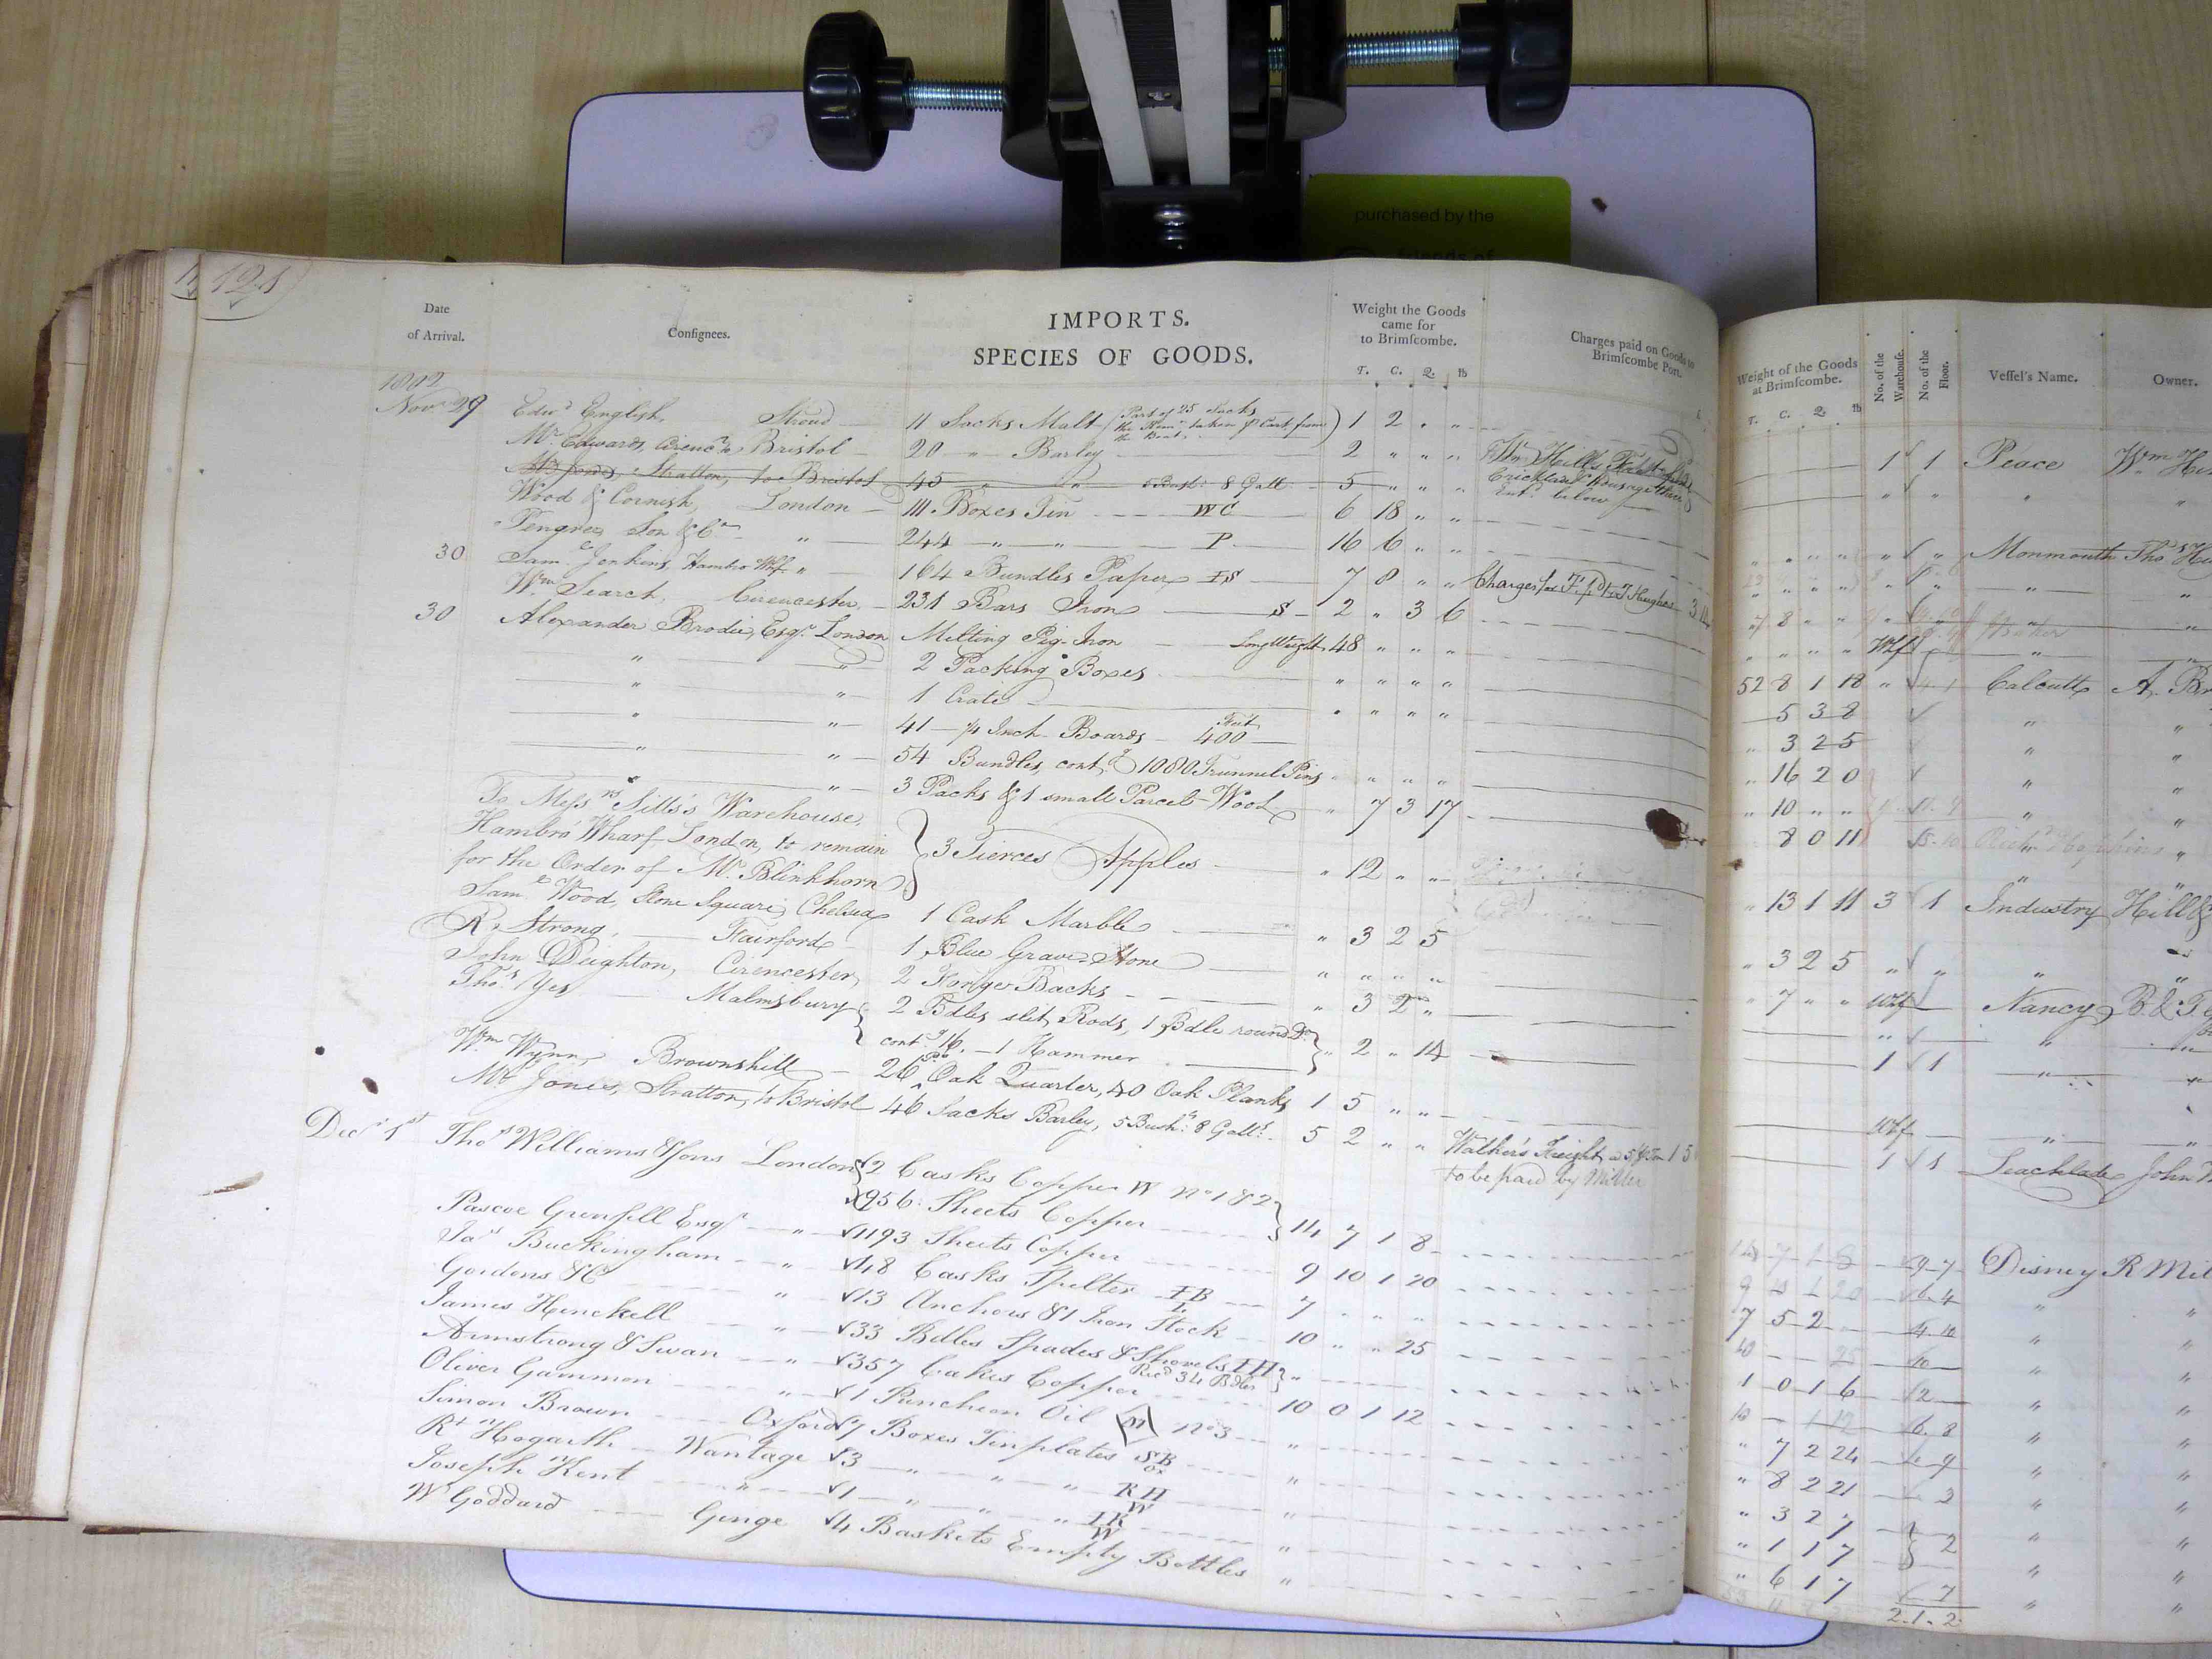 purchased by the
121
Date
of Arrival.
Consignees.
IMPORTS.
SPECIES OF GOODS.
Weight the Goods
came for
to Brimscombe.
T. C. Q. lb
Charges paid on Goods to
Brimscombe Port.
Weight of the Goods
at Brimscombe.
T. C. Q. lb
No. of the
Warehouse.
No. of the
Floor.
Vessel's Name.
Owner.
1802
Novr 29 Edwd English, Stroud 11 Sacks Malt (Part of 25 Sacks 1 2 " "
the Remr taken pr Cart from
the Boat)
1 1 Peace Wm
Mr Edwards, Cirencr, Bristol 20 " Barley 2 " " "
Mr Jones, Stratton, to Bristol 45 " " 5 Bushs 8 Galls 5 " " "
below
Wood & Cornish, London 111 Boxes Tin WC 6 18 " "
Monmouth Thos
Pengree Son & Co " 244 " " P 16 6 " "
30 Saml Jenkins Hambro Whf " 164 Bundles Paper IS 7 8 " "
Wm Search, Cirencester 231 Bars Iron S 2 " 3 6
Whf
30 Alexander Brodie, Esqr London Melting Pig Iron Long Weight 48 " " "
52 8 1 18 Calcutts A.
" " 2 Packing Boxes " " " "
5 3 8
" " 1 Crate " " " "
3 2 5
" " 41 - 3/4 Inch Boards - Feet 400
16 2 0
" " 54 Bundles, contg 1080 Trunnel Pins " " " "
10 " "
" " 3 Packs & 1 small Parcel Wool " 7 3 17
8 0 11
To Messrs Sills's Warehouse,
Hambro' Wharf London, to remain 3 Tierces Apples " 12 " "
for the Order of Mr Blinkhorn
" 13 1 11 3 1 Industry Hill &
Saml Wood, Stone Square, Chelsea 1 Cask Marble " 3 2 5
" 3 2 5
R. Strong, Fairford 1 Blue Grave Stone " " " "
" 7 " " Whf Nancy B. &
John Deighton, Cirencester 2 Forge Backs " 3 2 "
Thos Yes Malmsbury 2 Bdles slit Rods, 1 Bdle round Do
contg 16. - 1 Hammer " 2 " 14
1 1
Wm Wynn, Brownshill 26 Oak Quarter, 40 Oak Planks 1 5 " "
Whf
Mr Jones, Stratton, to Bristol 46 Sacks Barley, 5 Bushs 8 Galls 5 2 " " Walker's Freight
to be paid by Miller
1 1 Leachlade John
Decr 1st Thos Williams & Sons London 2 Casks Copper W No 1 & 2
956 Sheets Copper 14 7 1 8
Disney R Mil
Pascoe Grenfell Esqr " 1193 Sheets Copper 9 10 1 20
Jas Buckingham " 148 Casks Spelter IB L 7 " " "
7 5 2
Gordons & Co " 13 Anchors & 1 Iron Stock 10 " " 25
James Henckell " 33 Bdles Spades & Shovels IH
Recd 34 Bdles "
1 0 1 6 2
Armstrong & Swan " 357 Cakes Copper 10 0 1 12
Oliver Gammon " 1 Puncheon Oil M No 3 "
" 7 2 24
Simon Brown Oxford 7 Boxes Tinplates SB Ox "
" 8 2 21 2
Rt Hogarth Wantage 3 " " " RH W "
" 3 2 7
Joseph Kent " 1 " " " IK W "
" 1 1 7 2
W Goddard Ginge 4 Baskets Empty Bottles "
" 6 1 7 7
2.1.2